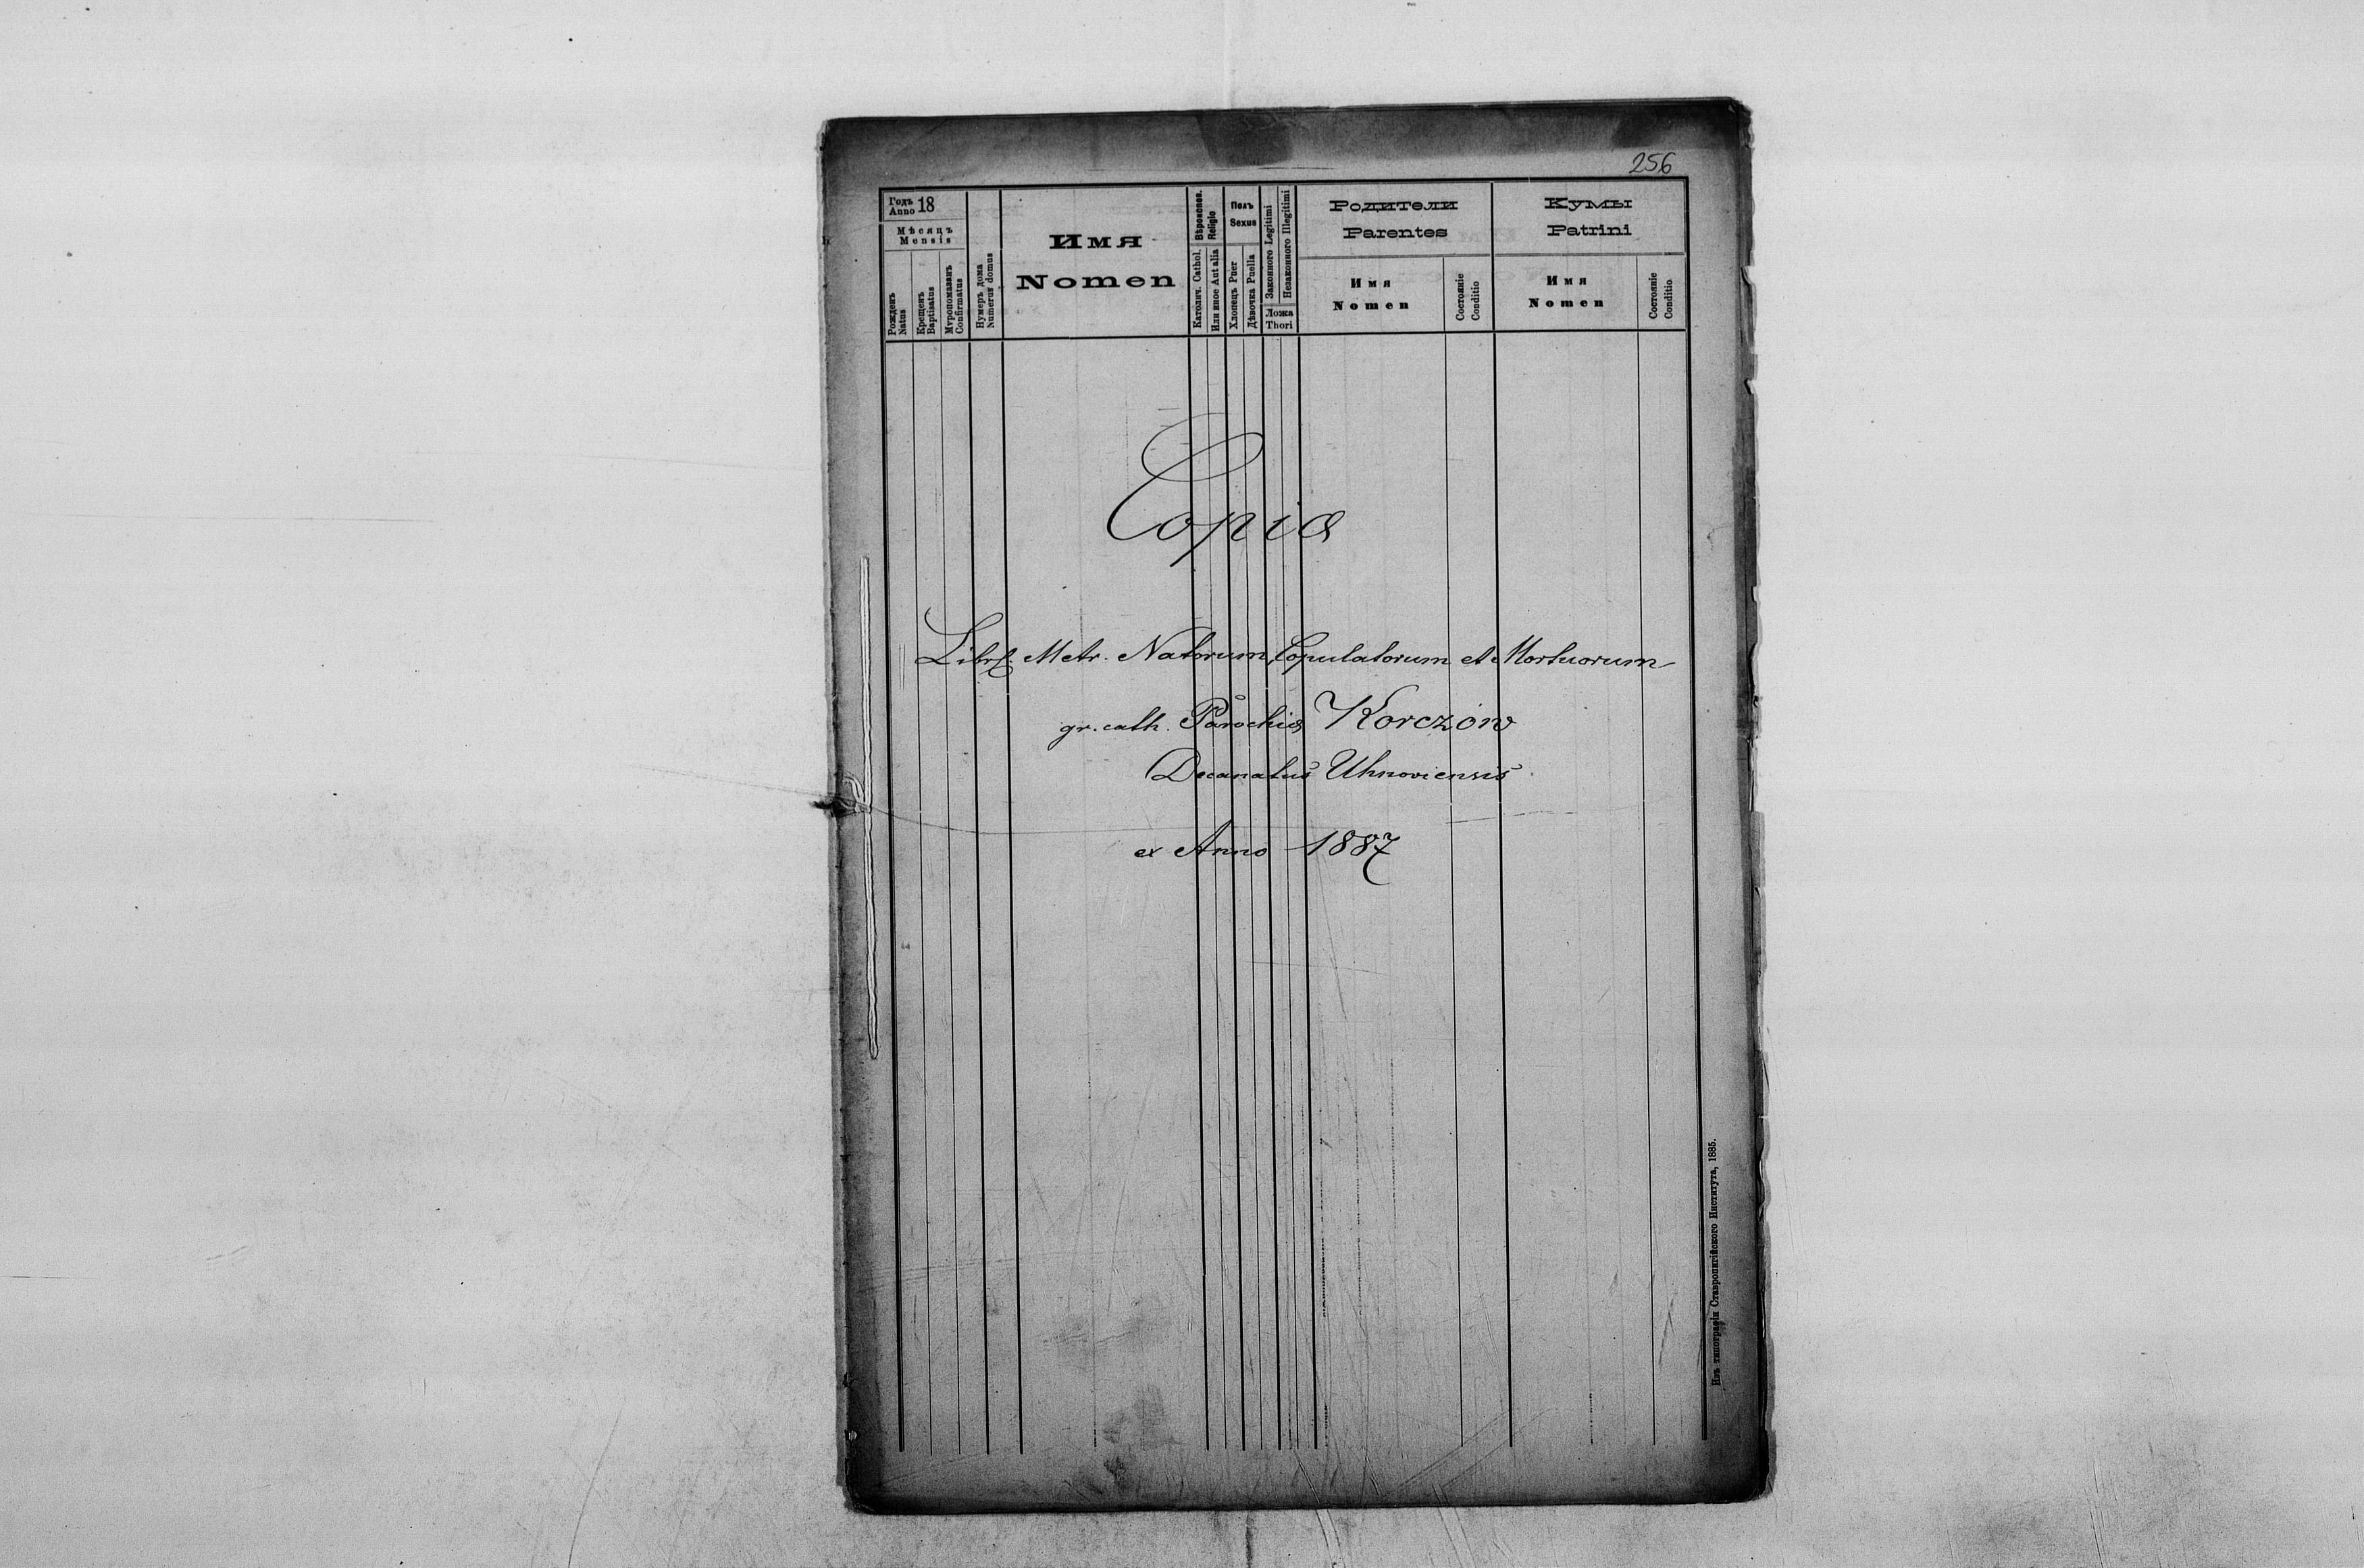 256
Годъ
Anno 18
Мѣсяцъ
Mensis
Рожденъ
Natus
Крещенъ
Baptisatus
Мѵропомазанъ
Confirmatus
Нумеръ дома
Numerus domus
Имя
Nomen
Вѣроиспов.
Religio
Католич. Cathol.
Или иное Aut alia
Полъ
Sexus
Хлопецъ Puer
Дѣвочка Puella
Законного Legitimi
Незаконного Illegitimi
Ложа
Thori
Родители
Parentes
Имя
Nomen
Состояніе
Conditio
Кумы
Patrini
Имя
Nomen
Состояніе
Conditio
Copia
Metr. Natorum, Copulatorum et Mortuorum
gr. cath. Parochia Korczów
Decanatus Uhnoviensis
ex Anno 1887
Изъ типографіи Ставропигійского Института, 1885.